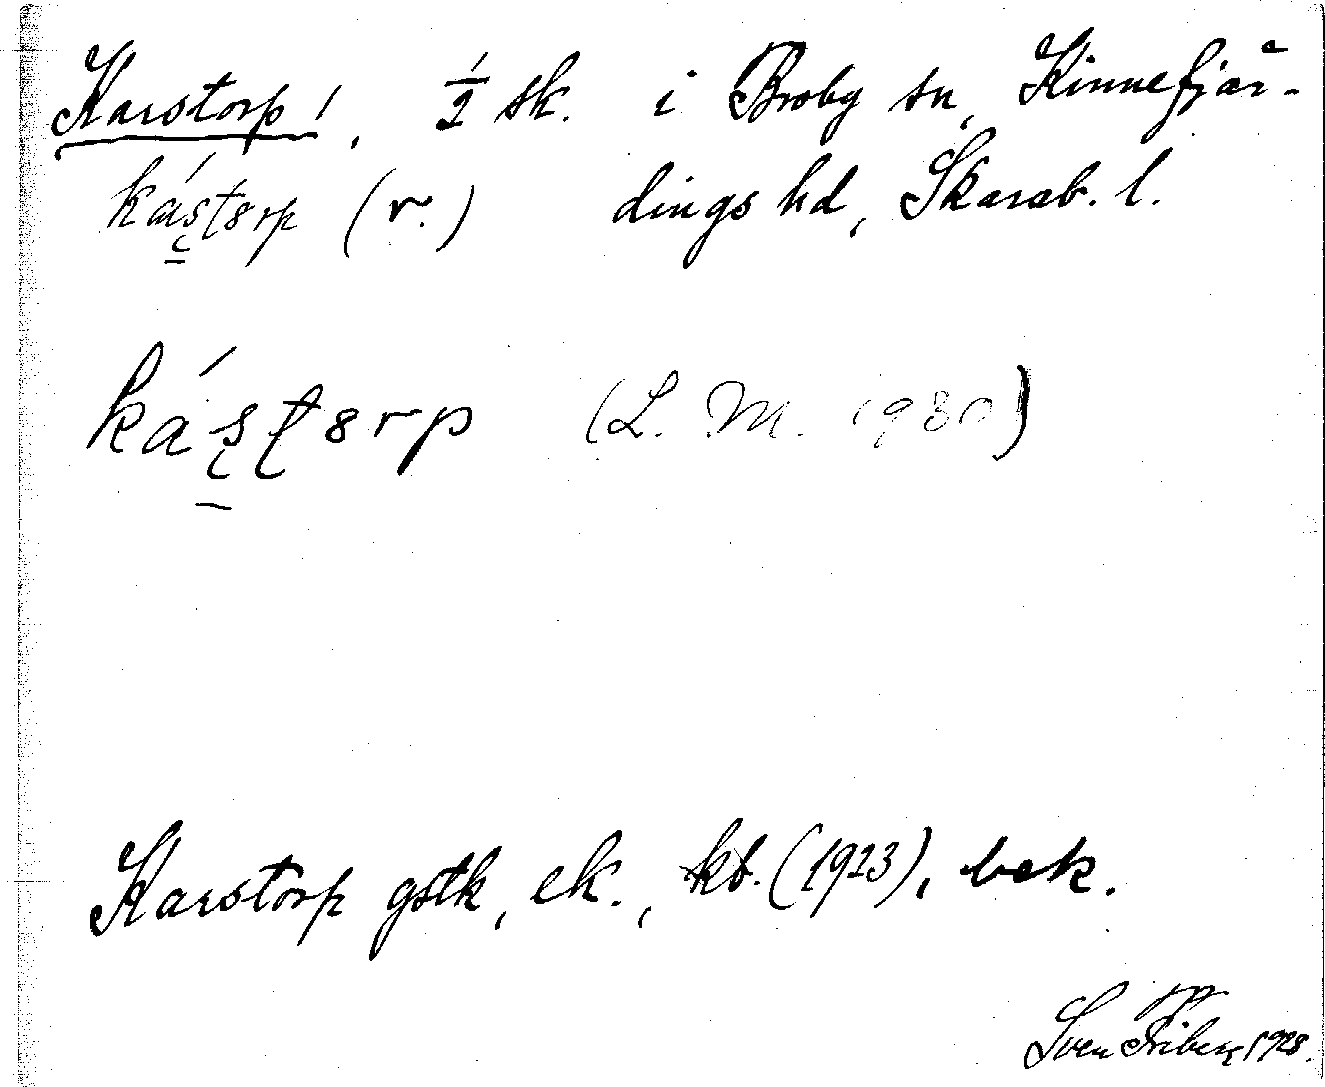 Karstorp!, 1/2 sk. i Broby sn, Kinnefjär-
kás̨t̨8rp (r.) dings hd, Skarab. l.
kás̨t̨8rp (L. M. 1930)
Karstorp gstk, ek., kb. (1923), bek.
Sven Friberg 1928.